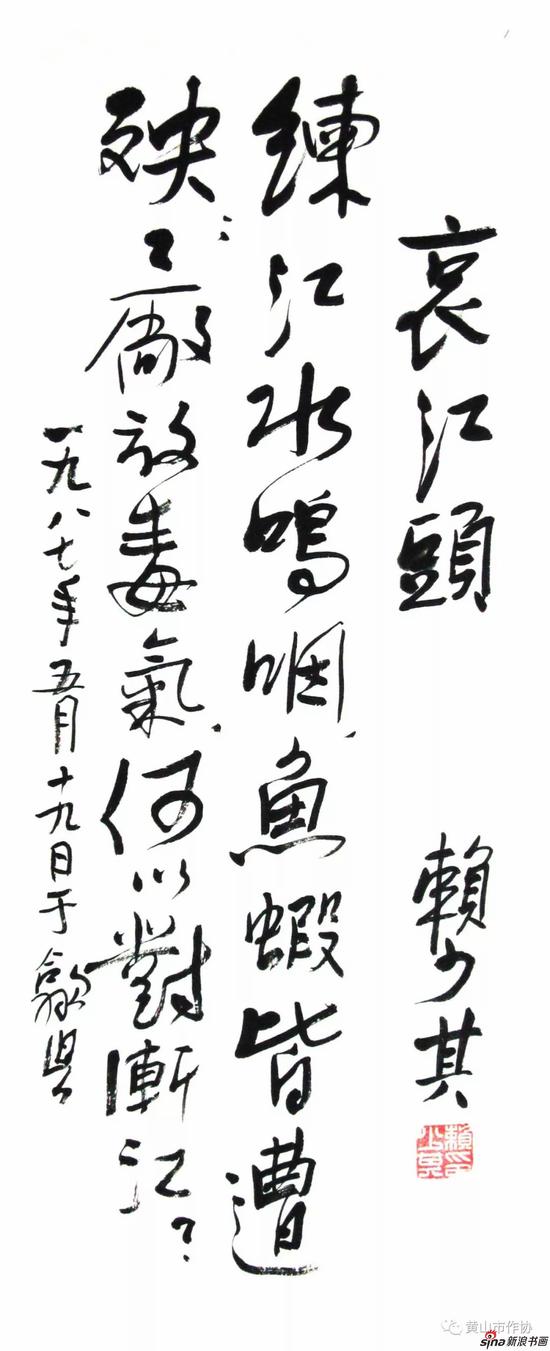 哀江頭 賴少其
賴少其印
練江水嗚咽、魚蝦皆遭
殃；工廠放毒氣、何以對漸江？
一九八七年五月十九日于歙县
黄山市作协
sina新浪书画